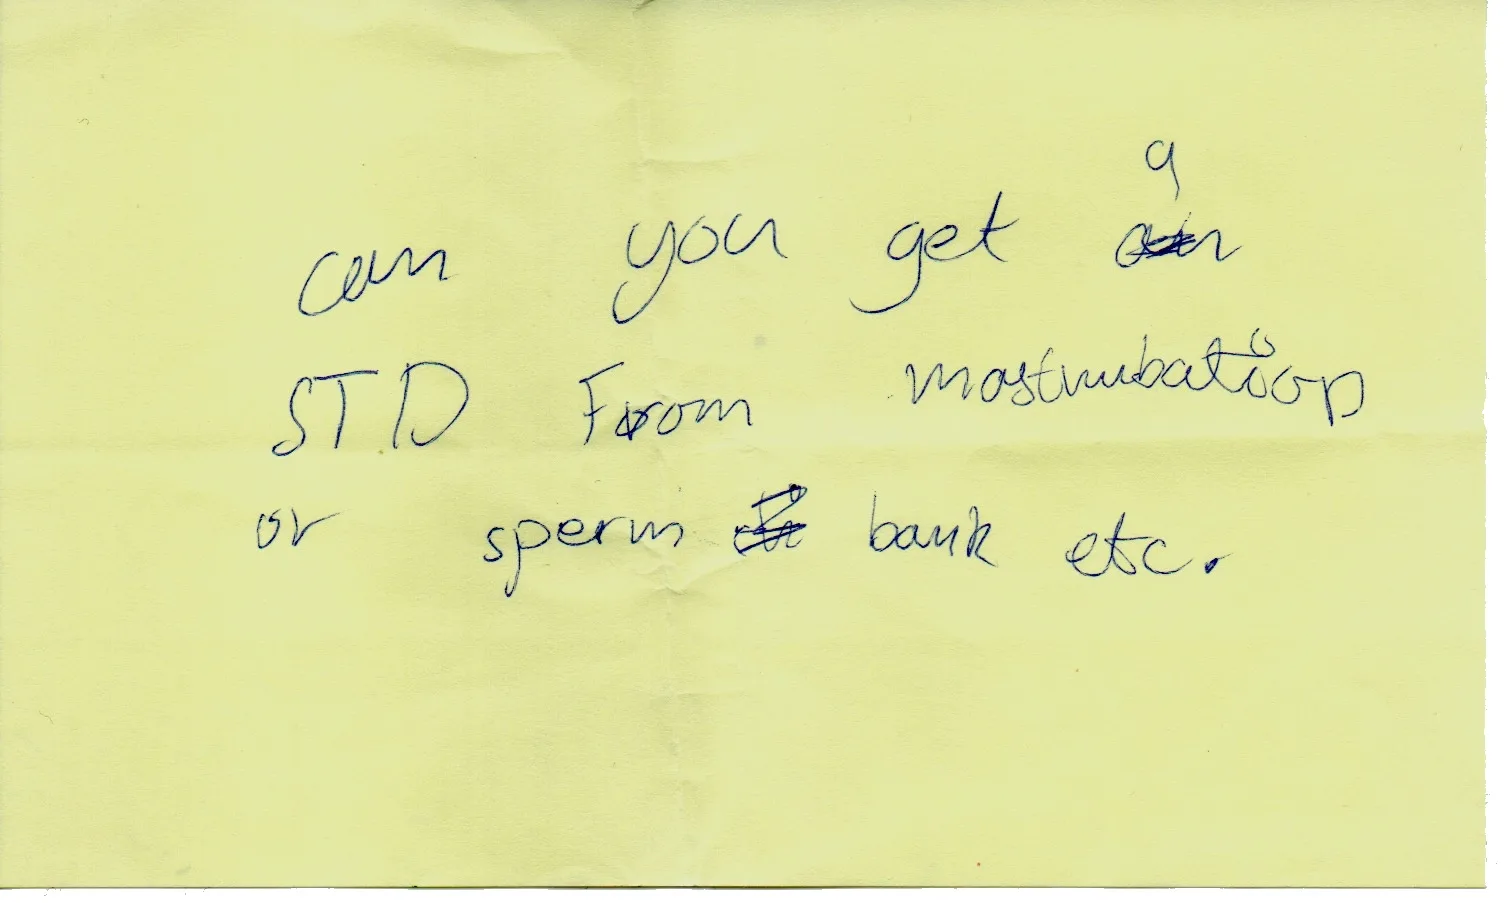 can you get a
STD From mastrubation
or sperm bank etc.